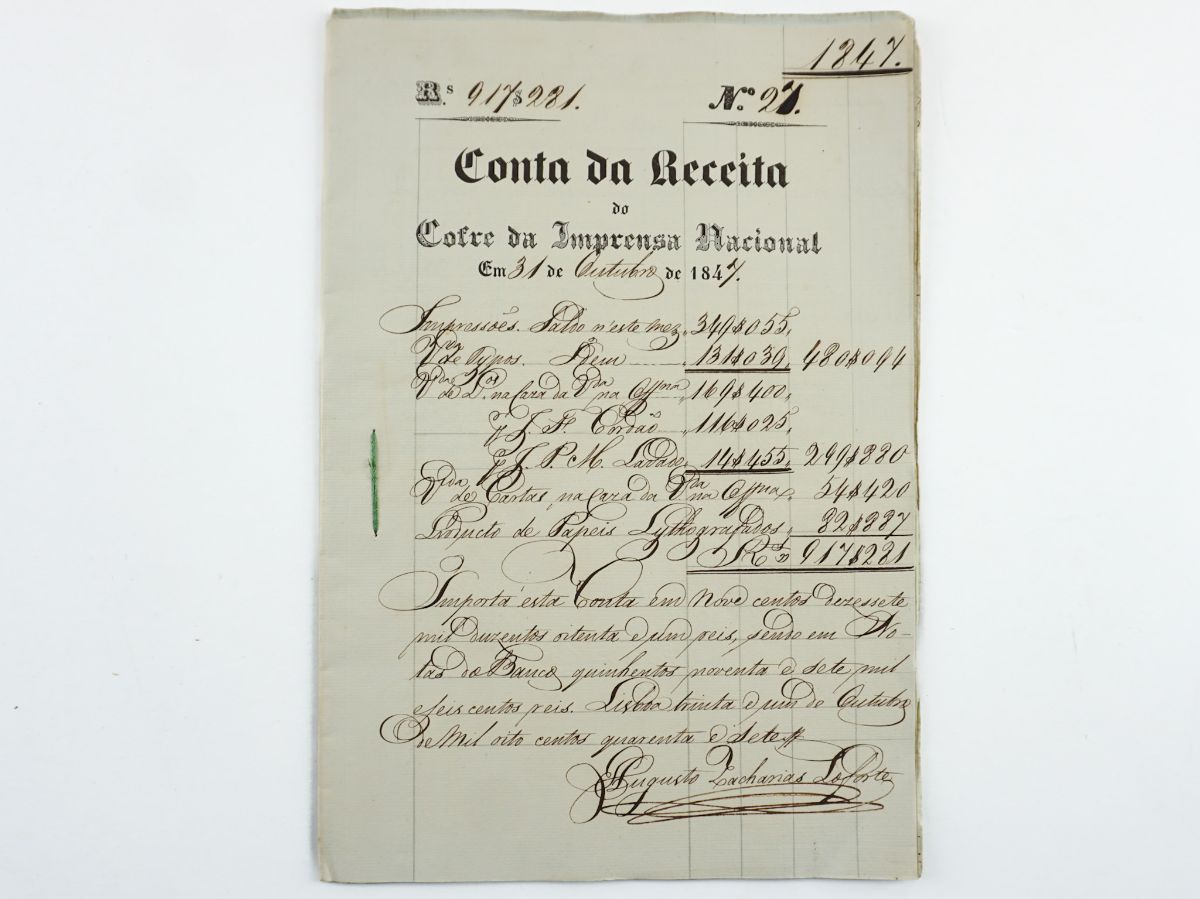 1847.
R.s 917$281. N.o 27.
Conta da Receita
do
Cofre da Imprensa Nacional
Em 31 de Outubro de 1847.
Impressões. Saldo n'este mez " 349$055"
Vda de Typos. Idem " 131$039" 480$094
Vda de I.os na Caza da Vda na Offna " 169$400"
pr J. F. Cordão " 116$025"
pr J. P. M. Lavado " 14$455" 299$880
Vda de Cartas na Caza da Vda na Offna " 54$420
Producto de Papeis Lythografados " 82$887
Rs " 917$281
Importa ésta Conta em Nove centos dezessete
mil duzentos oitenta e um reis, sendo em No-
tas do Banco quinhentos noventa e sete mil
e seis centos reis. Lisboa trinta e um de Outubro
de Mil oito centos quarenta e sete
Augusto Zacharias Loforte